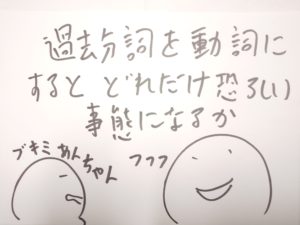 過去分詞を動詞に
すると どれだけ恐ろしい
事態になるか
ブキミめんちゃん
フフフ